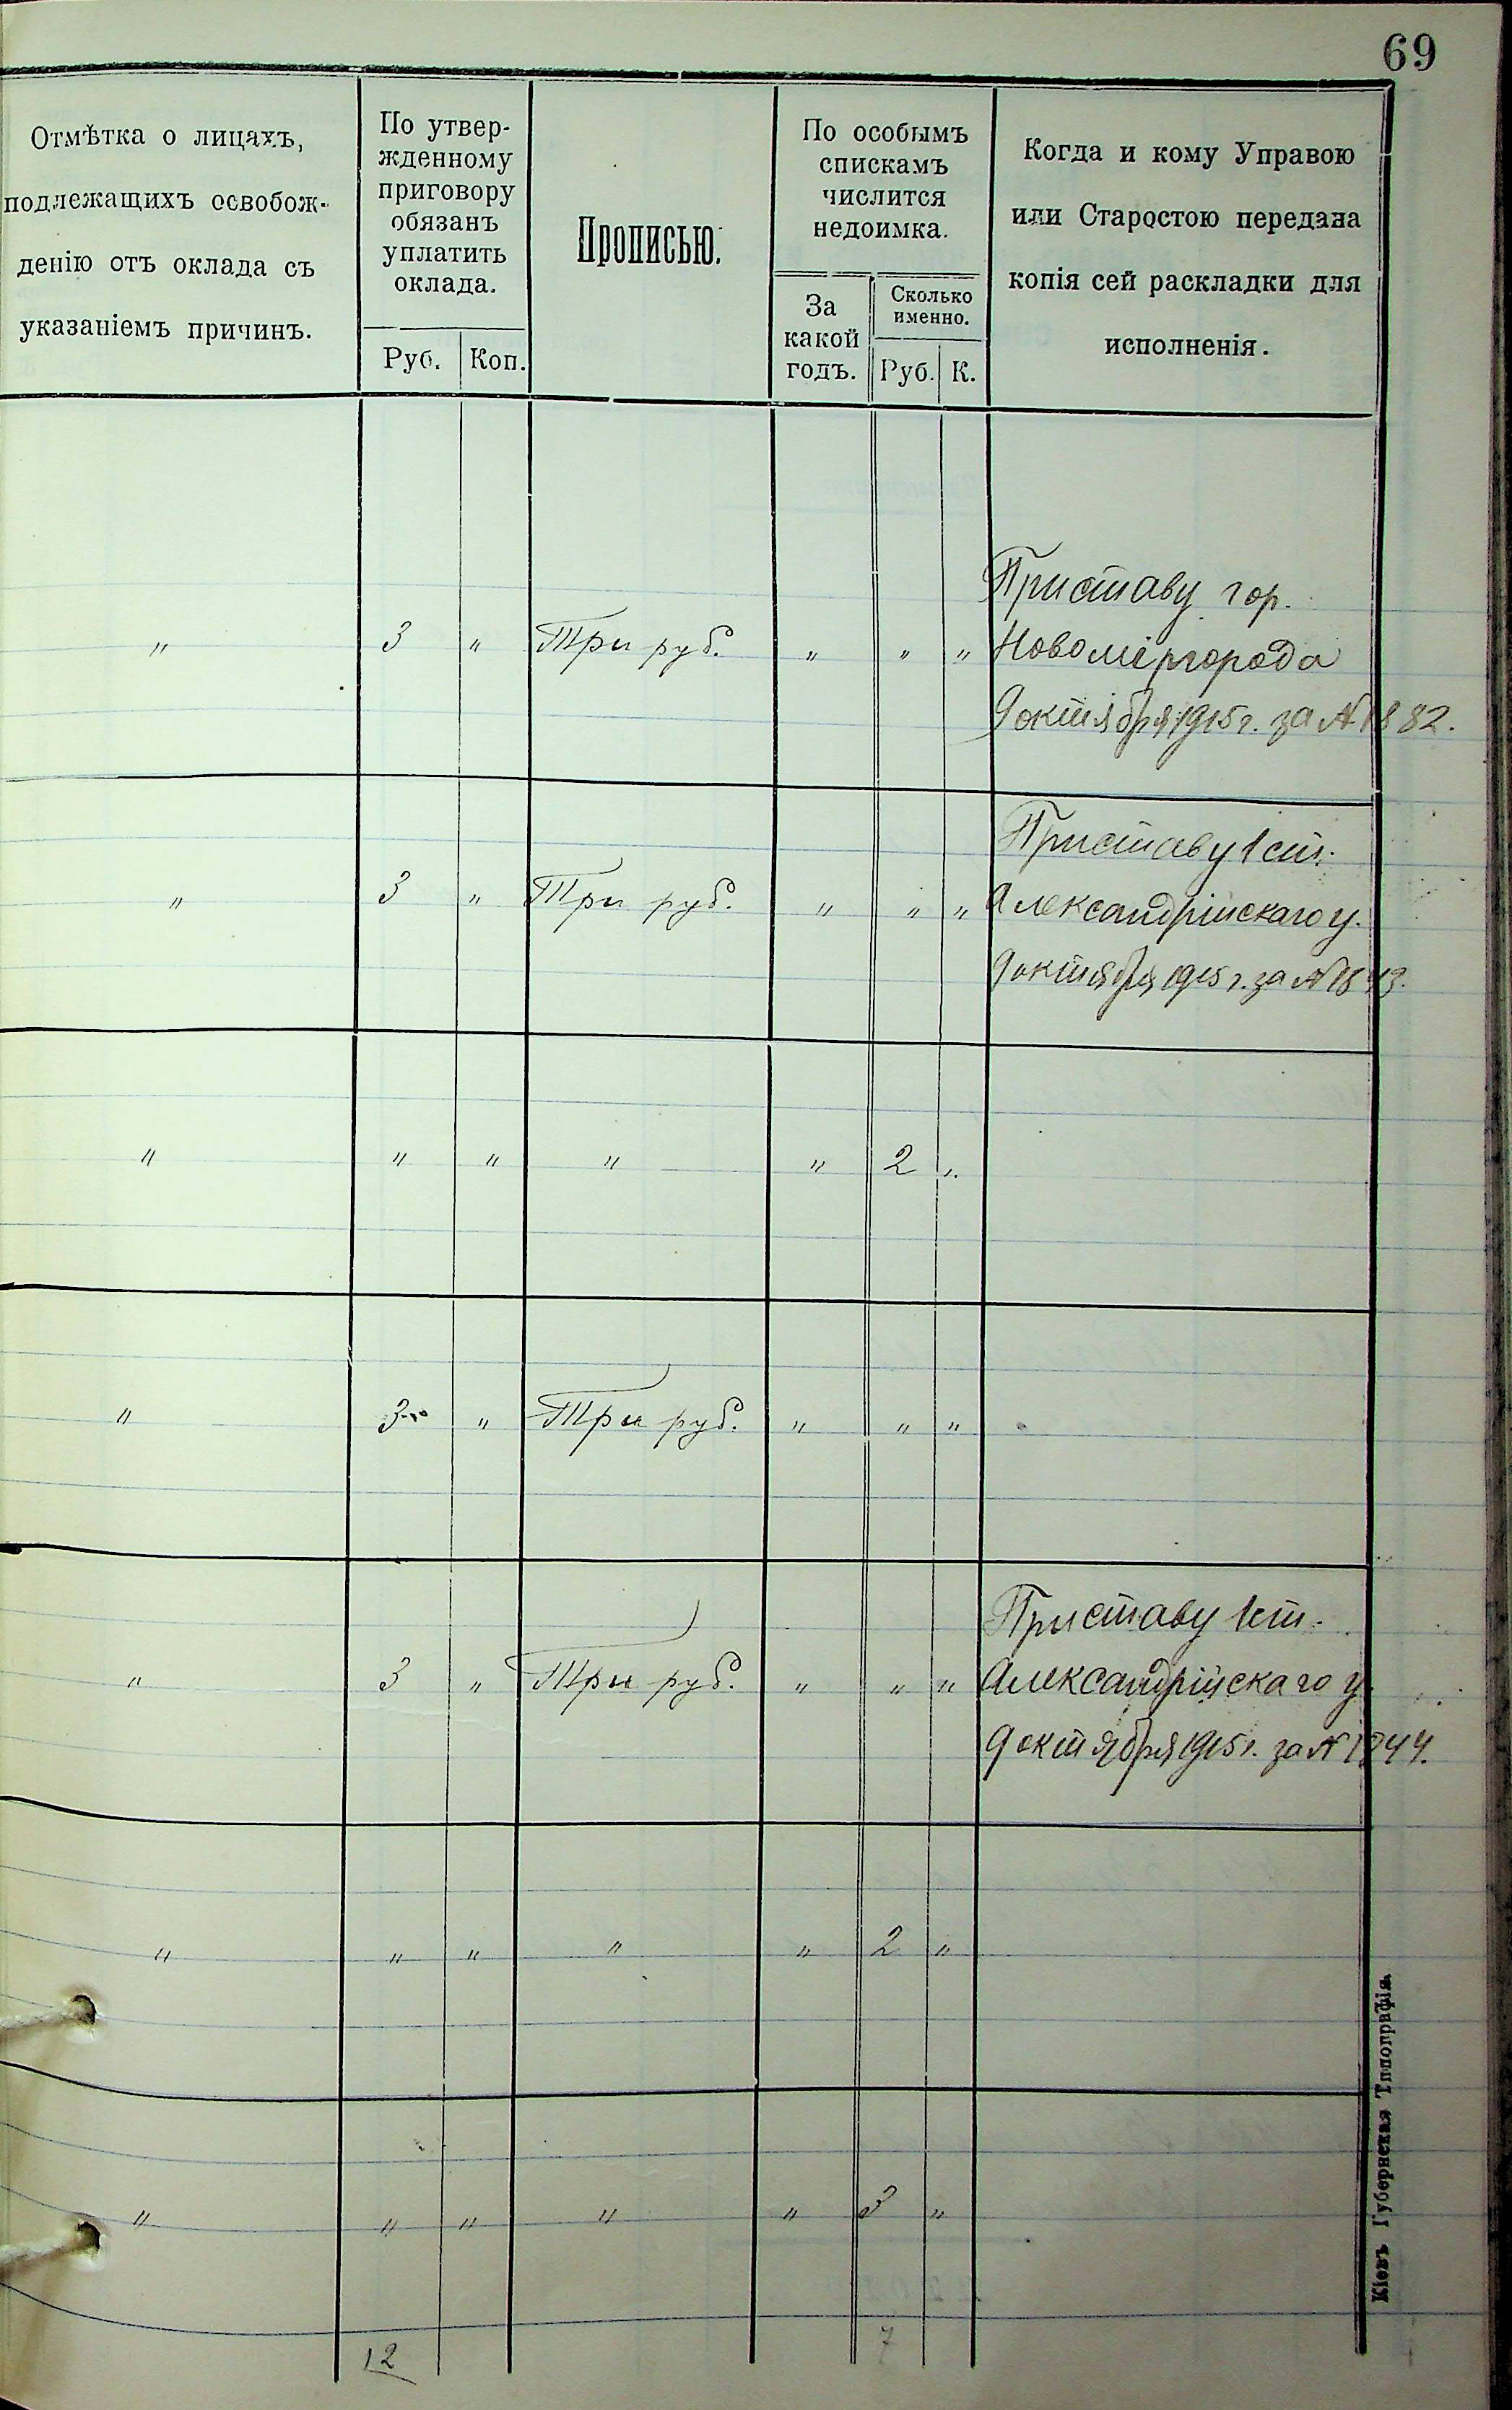 69
Отмѣтка о лицахъ,
подлежащихъ освобож-
денію отъ оклада съ
указаніемъ причинъ.
По утвер-
жденному
приговору
обязанъ
уплатить
оклада.
Руб. Коп.
Прописью.
По особымъ
спискамъ
числится
недоимка.
За
какой
годъ.
Сколько
именно.
Руб. К.
Когда и кому Управою
или Старостою передана
копія сей раскладки для
исполненія.
Приставу гор.
" 3 " Три руб. " " " Новомиргорода
9 октября 1915 г. за № 1882.
Приставу 1 ст.
" 3 " Три руб. " " " Александрійскаго у.
9 октября 1915 г. за №
" " " " " 2 "
" 3 " Три руб. " " "
Приставу 1 ст.
" 3 " Три руб. " " " Александрійскаго у.
9 октября 1915 г. за № 1844.
" " " " " 2 "
" " " " " 3 "
12 7
Кіевъ Губернская Типографія.